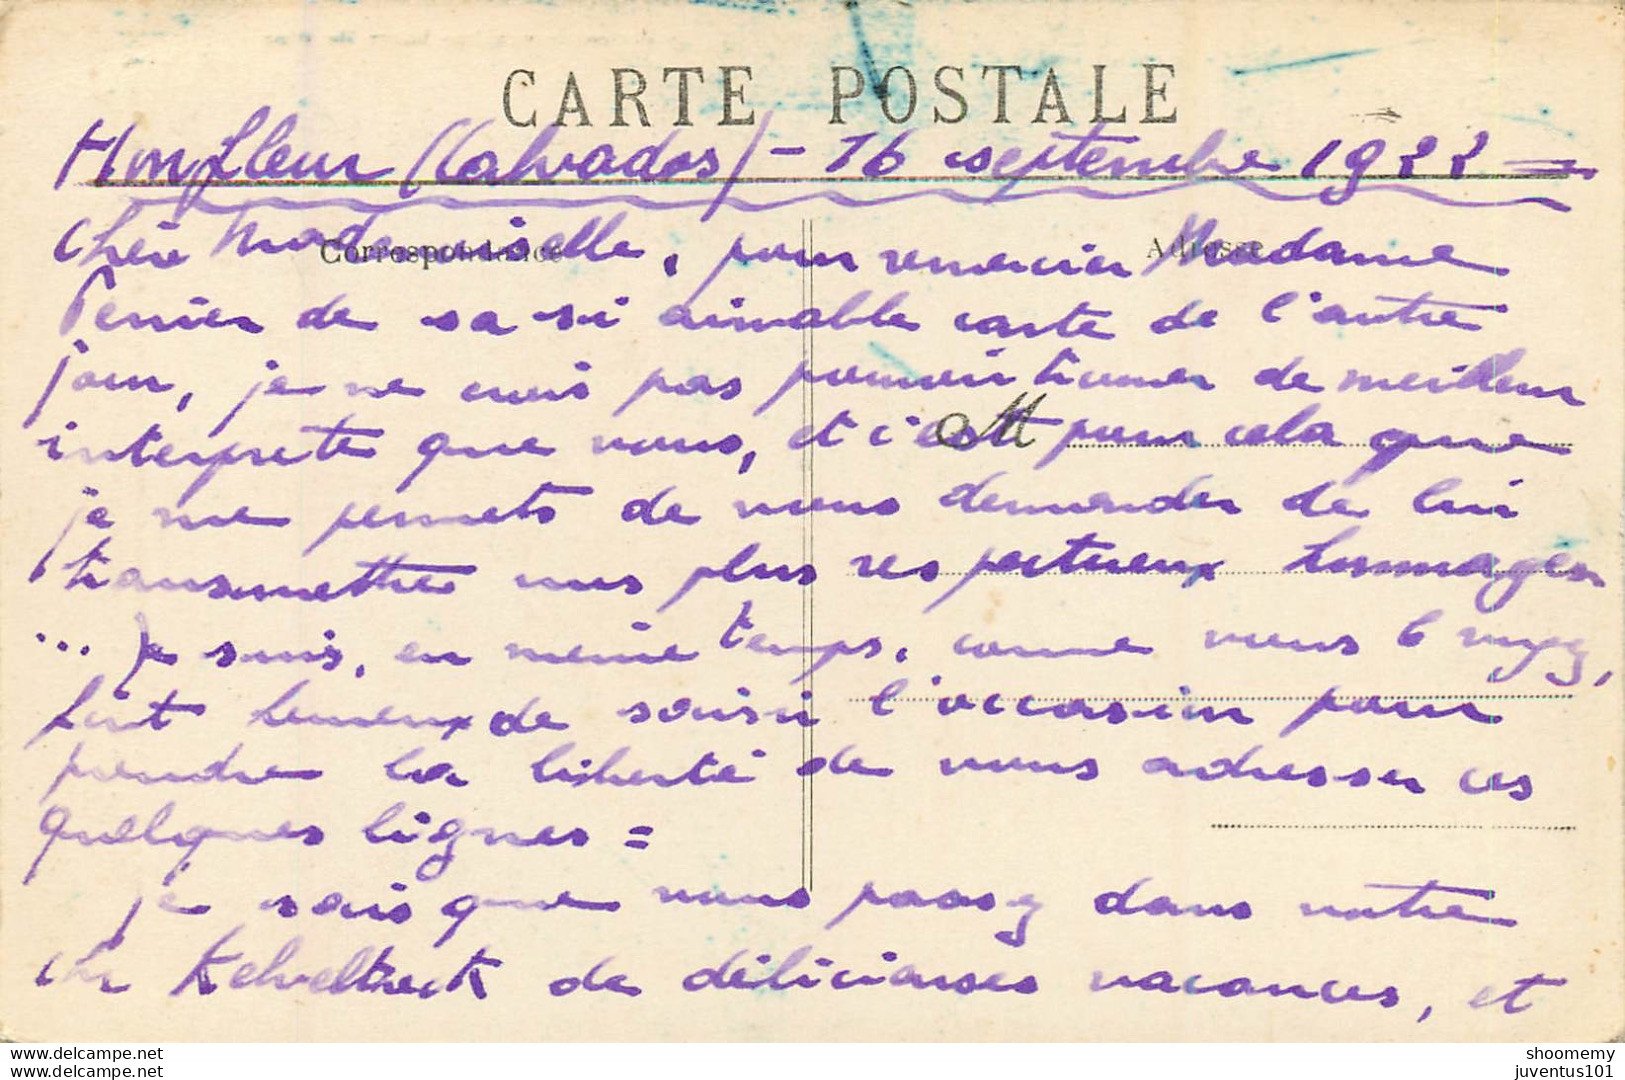 CARTE POSTALE
Honfleur (Calvados) - 16 septembre 1922 =
Correspondance Adresse
Chère Mademoiselle, pour remercier Madame
Perrier de sa si aimable carte de l'autre
jour, je ne crois pas pouvoir trouver de meilleur
interprète que vous, et c'est pour cela que
M
je me permets de vous demander de lui
transmettre mes plus respectueux hommages
... Je suis, en même temps, comme vous le voyez,
fort heureux de saisir l'occasion pour
prendre la liberté de vous adresser ces
quelques lignes =
Je sais que vous passez dans votre
de délicieuses vacances, et
www.delcampe.com
www.delcampe.com
shoomemy
juventus101